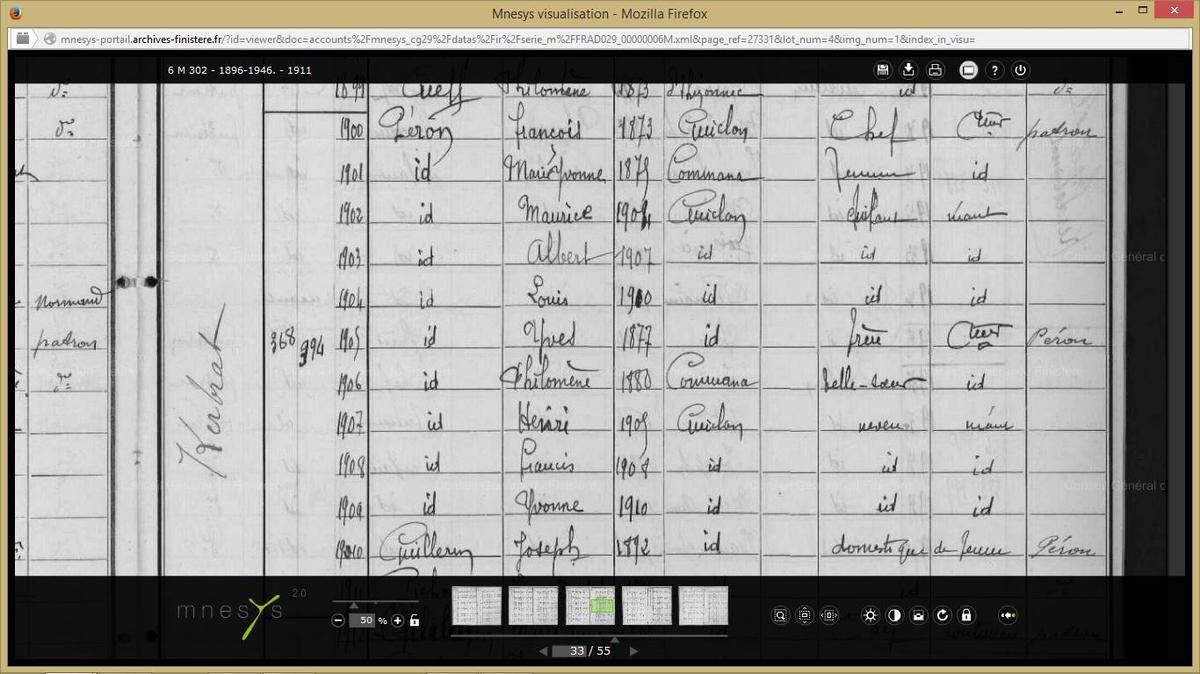 Mnesys visualisation - Mozilla Firefox
mnesys-portail.archives-finistere.fr/?id=viewer&doc=accounts%2Fmnesys_cg29%2Fdatas%2Fir%2Fserie_m%2FFRAD029_00000006M.xml&page_ref=27331&lot_num=4&img_num=1&index_in_visu=
6 M 302 - 1896-1946. - 1911
d°= 1899 Cueff Philomène 1873 id d°=
d°= 1900 Péron François 1873 Guiclan Chef Cteur patron
1901 id Marie Yvonne 1879 Commana femme id
1902 id Maurice Guiclan enfant néant
1903 id Albert 1907 id id id
Normand 1904 id Louis 1910 id id id
patron Kerbrat 368 394 1905 id Yves 1877 id frère Cteur Péron
d°= 1906 id Philomène 1880 Commana belle-sœur id
1907 id Henri 1905 Guiclan neveu néant
1908 id Francis 1908 id id id
1909 id Yvonne 1910 id id id
1910 Guillerm Joseph 1892 id domestique de ferme Péron
mnesys 2.0
50 %
33 / 55